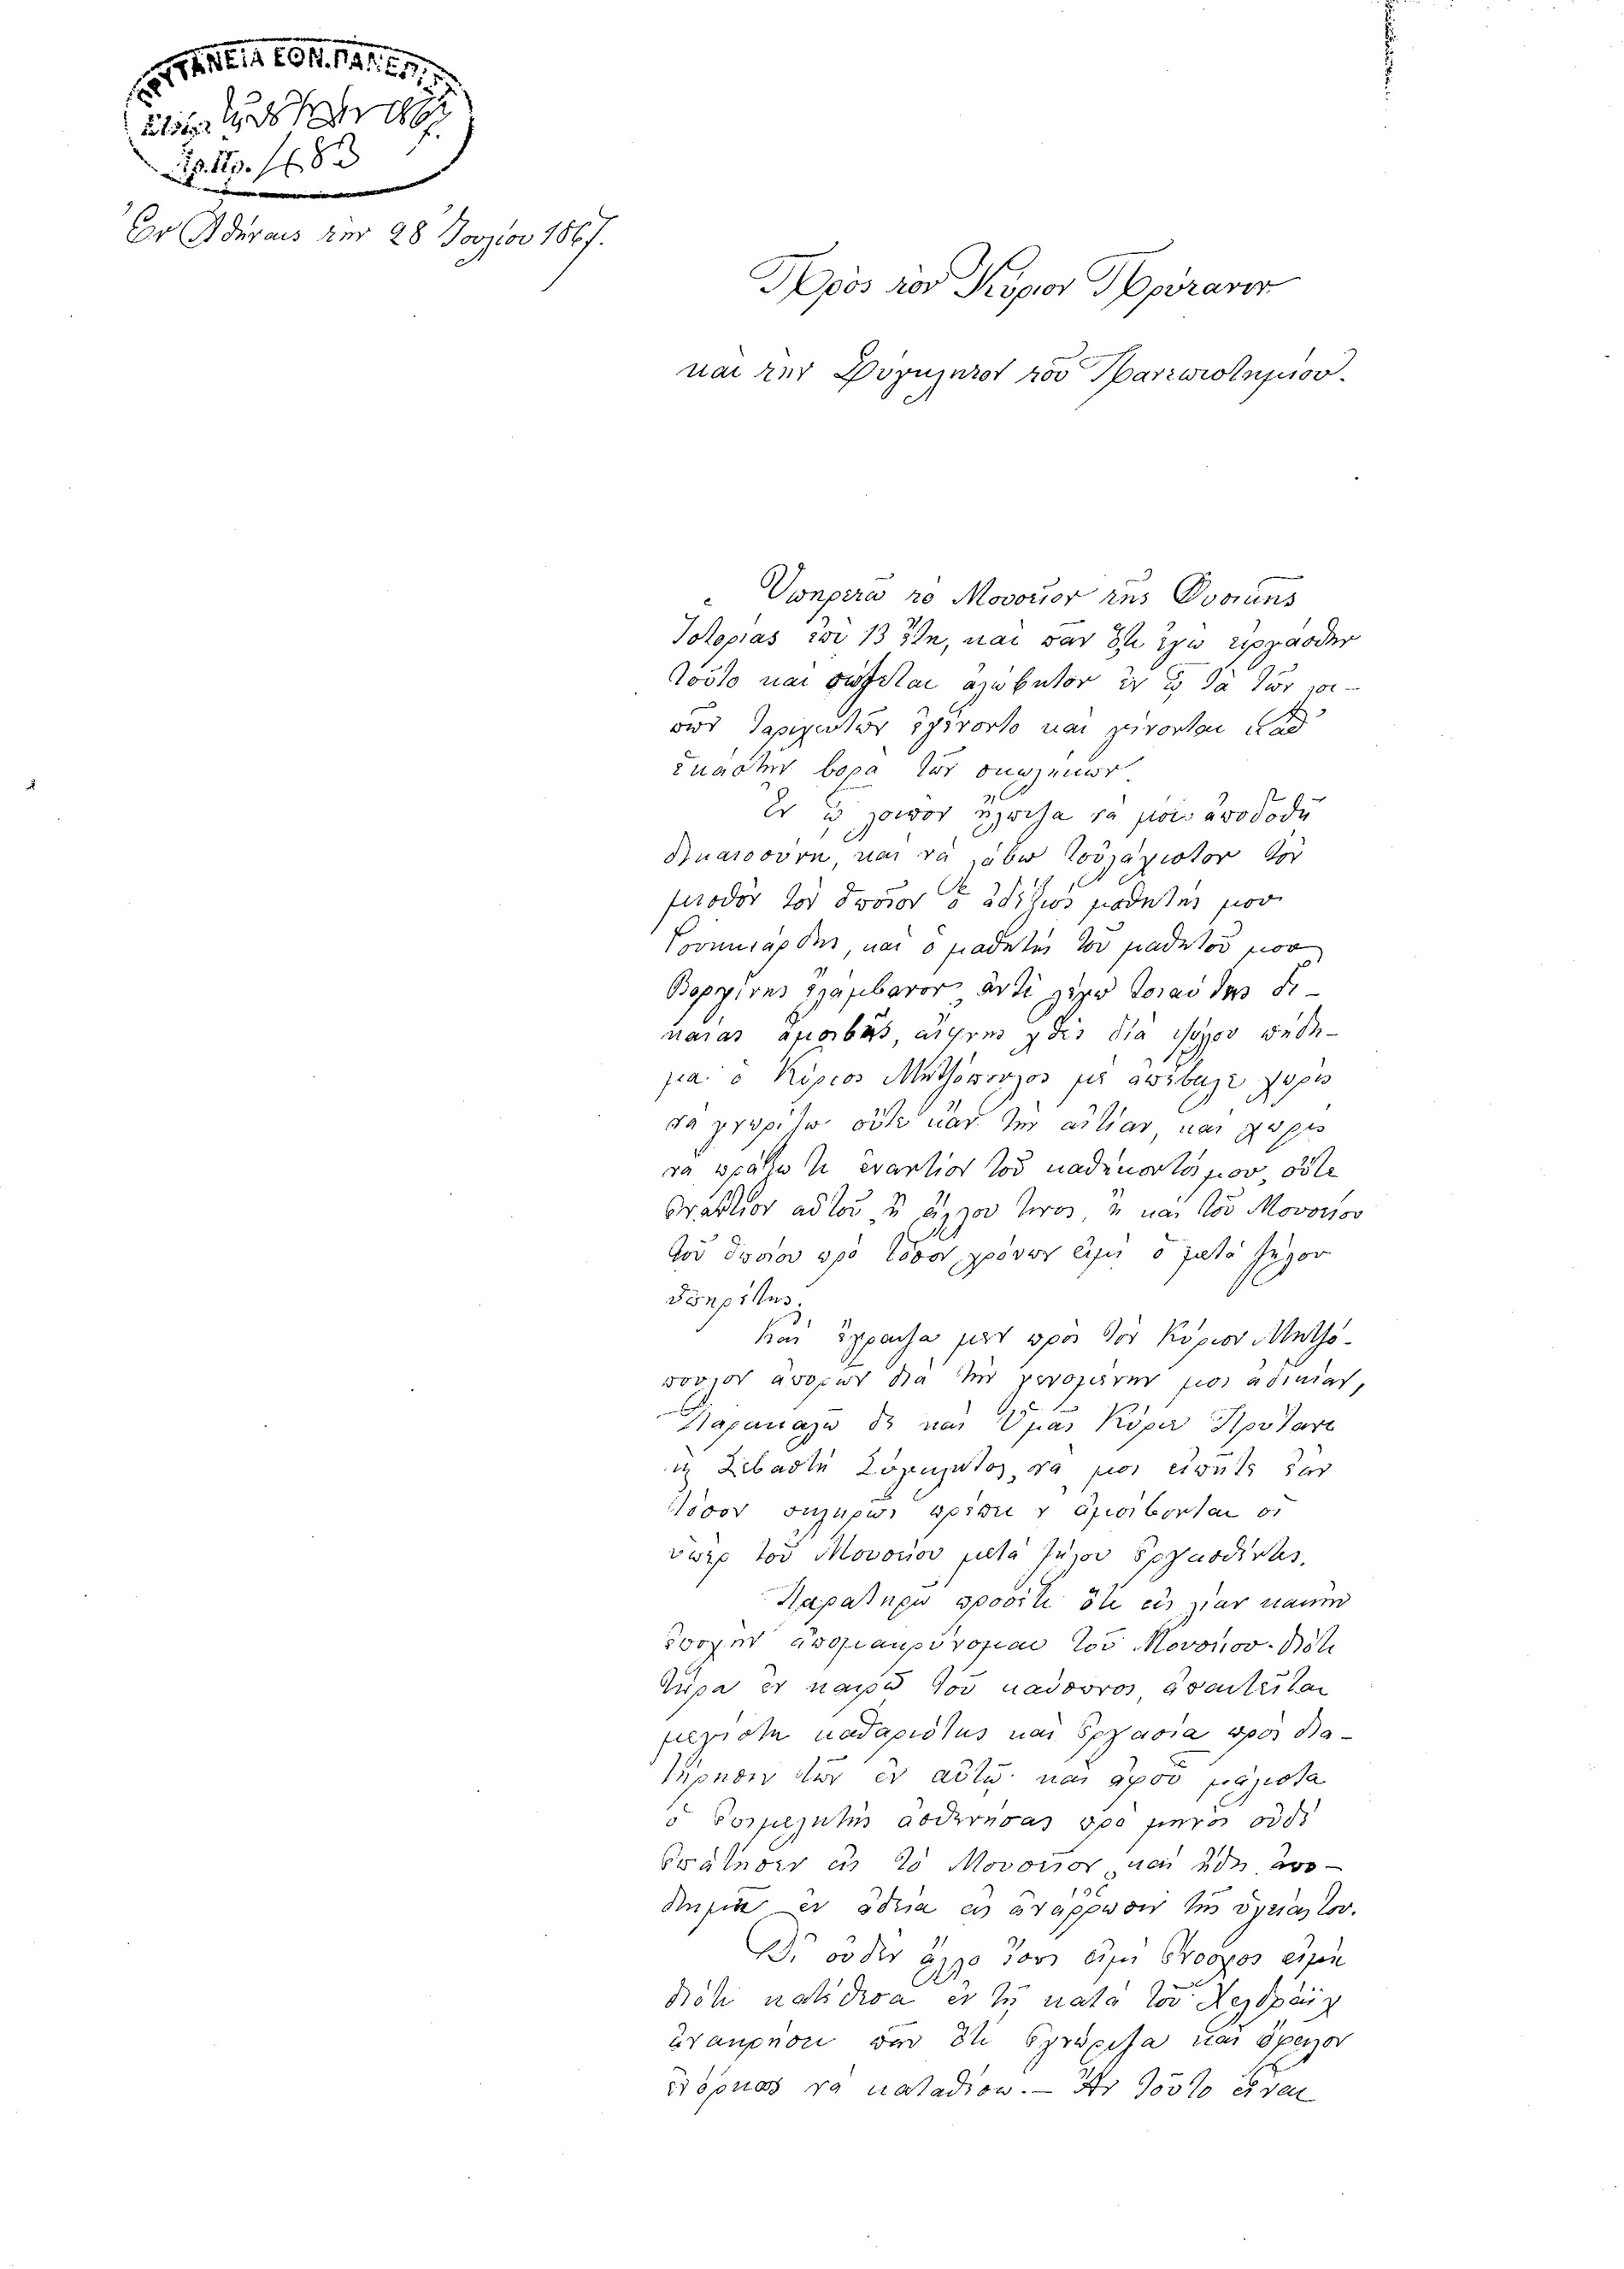 ΠΡΥΤΑΝΕΙΑ ΕΘΝ. ΠΑΝΕΠΙΣ
Ἀρ. Πρ. 1483
Ἐν Ἀθήναις τὴν 28 Ἰουλίου 1867.
Πρὸς τὸν Κύριον Πρύτανιν
καὶ τὴν Σύγκλητον τοῦ Πανεπιστημίου.
Ὑπηρετῶ τὸ Μουσεῖον τῆς Φυσικῆς
Ἱστορίας ἐπὶ 13 ἔτη, καὶ πᾶν ὅτι ἔχω ἐργασθῆ
τοῦτο καὶ σώζεται ἀλώβητον ἐν ᾧ τὰ τῶν
ἐγίνοντο καὶ γίνονται καθ'
ἑκάστην βορὰ τῶν σκωλήκων.
Ἐν ᾧ λοιπὸν ἤλπιζα νὰ μοὶ ἀποδοθῇ
δικαιοσύνη, καὶ νὰ λάβω τοὐλάχιστον τὸν
μισθὸν τὸν ὁποῖον ὁ ἀδέξιος μαθητής μου
καὶ ὁ μαθητὴς τοῦ μαθητοῦ μου
ἐλάμβανον, ἀντὶ λέγω τοιαύτης δι-
καίας ἀμοιβῆς, αἴφνης χθὲς διὰ
ὁ Κύριος Μητσόπουλος μὲ ἀπέβαλε χωρὶς
νὰ γνωρίζω οὔτε κἂν τὴν αἰτίαν, καὶ χωρὶς
νὰ πράξω τι ἐναντίον τοῦ καθήκοντός μου, οὔτε
ἐναντίον αὐτοῦ ἢ ἄλλου τινος, ἢ καὶ τοῦ Μουσείου
τοῦ ὁποίου πρὸ τόσων χρόνων εἶμαι ὁ μετὰ ζήλου
ὑπηρέτης.
Καὶ ἔγραψα μὲν πρὸς τὸν Κύριον Μητσό-
πουλον ἀπορῶν διὰ τὴν γενομένην μοι ἀδικίαν,
Παρακαλῶ δὲ καὶ Ὑμᾶς Κύριε Πρύτανι
καὶ Σεβαστὴ Σύγκλητος, νὰ μοι εἰπῆτε ἐὰν
τόσον σκληρῶς πρέπει ν' ἀμοίβονται οἱ
ὑπὲρ τοῦ Μουσείου μετὰ ζήλου ἐργασθέντες.
Παρατηρῶ προσέτι ὅτι εἰς λίαν κακὴν
ἐποχὴν ἀπομακρύνομαι τοῦ Μουσείου. διότι
τώρα ἐν καιρῷ τοῦ καύσωνος, ἀπαιτεῖται
μεγίστη καθαριότης καὶ ἐργασία πρὸς δια-
τήρησιν τῶν ἐν αὐτῷ. καὶ ἀφοῦ μάλιστα
ὁ ἐπιμελητὴς ἀσθενήσας πρὸ μηνὸς οὐδὲ
ἐπάτησεν εἰς τὸ Μουσεῖον, καὶ ἤδη ἀπο-
δημεῖ ἐν ἀδείᾳ εἰς ἀνάρρωσιν τῆς ὑγείας του.
Δι' οὐδὲν ἄλλο ἴσως εἶμαι ἔνοχος εἰμὴ
διότι κατέθεσα ἐν τῇ κατὰ τοῦ Χελδράϊχ
ἀνακρίσει πᾶν ὅτι ἐγνώριζα καὶ ὤφειλον
ἐνόρκως νὰ καταθέσω. — Ἂν τοῦτο εἶναι